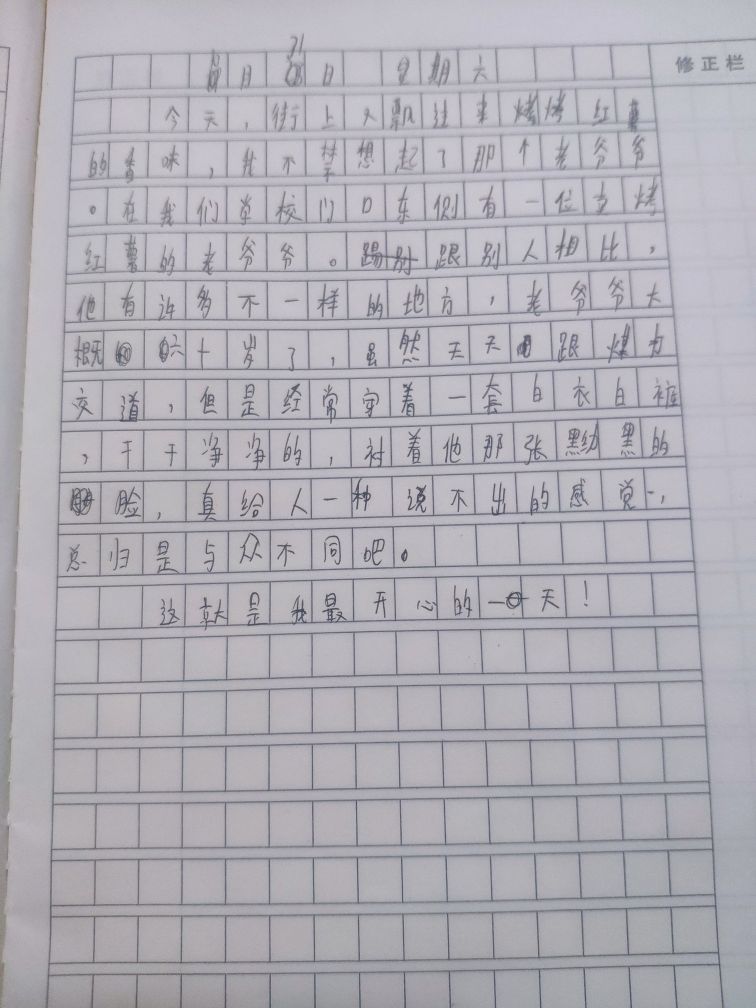 修正栏
月21日 星期六
今天，街上又飘过来烤烤红薯
的香味，我不禁想起了那个老爷爷
。在我们学校门口东侧有一位卖烤
红薯的老爷爷。跟别人相比，
他有许多不一样的地方，老爷爷大
概六十岁了，虽然天天跟煤力
交道，但是经常穿着一套白衣白裤
，干干净净的，衬着他那张黝黑的
脸，真给人一种说不出的感觉，
总归是与众不同吧。
这就是我最开心的一天！